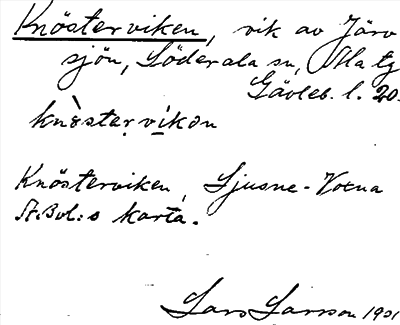 Knösterviken, vik av Järv
sjön, Söderala sn, Ala tg
Gävleb. l. 20.
knòstərvíkən
Knösterviken, Ljusne-Voxna
St. Bol:s karta.
Lars Larsson 1931